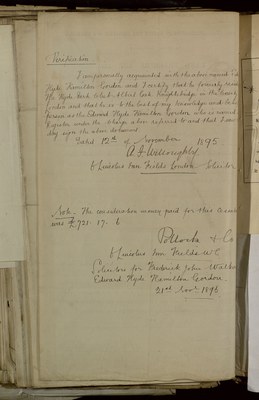 Verification.
I am personally acquainted with the above named Ed
Hyde Hamilton Gordon and I certify that he formerly resid
The Hyde Park Hotel Albert Gate Knightsbridge in the County
London and that he is to the best of my knowledge and
person as the Edward Hyde Hamilton Gordon who is named
Register under the charge above referred to and that I saw
Dated 12th of November 1895
A. J. Willoughby
6 Lincolns Inn Fields London Solicitor
Note. The consideration money paid for this
was £721-17-6
Pollock & Co
6 Lincolns Inn Fields W.C.
Solicitors for Frederick John
Edward Hyde Hamilton Gordon.
21st Novr 1896